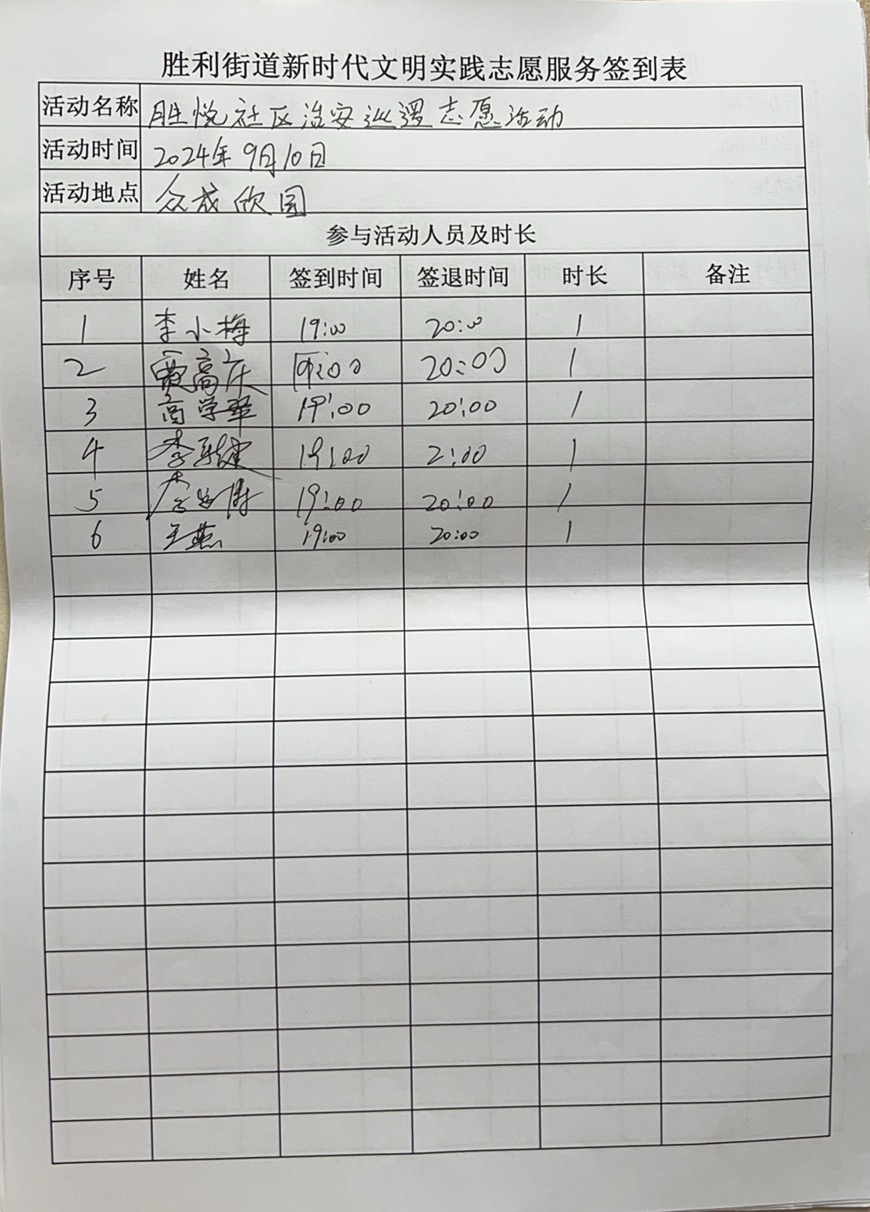 胜利街道新时代文明实践志愿服务签到表
活动名称 胜悦社区治安巡逻志愿活动
活动时间 2024年9月10日
活动地点 众成欣园
参与活动人员及时长
序号 姓名 签到时间 签退时间 时长 备注
1 李小梅 19:00 20:00 1
2 高庆 19:00 20:00 1
3 高学 19:00 20:00 1
4 李 19:00 2:00 1
5 19:00 20:00 1
6 王燕 19:00 20:00 1